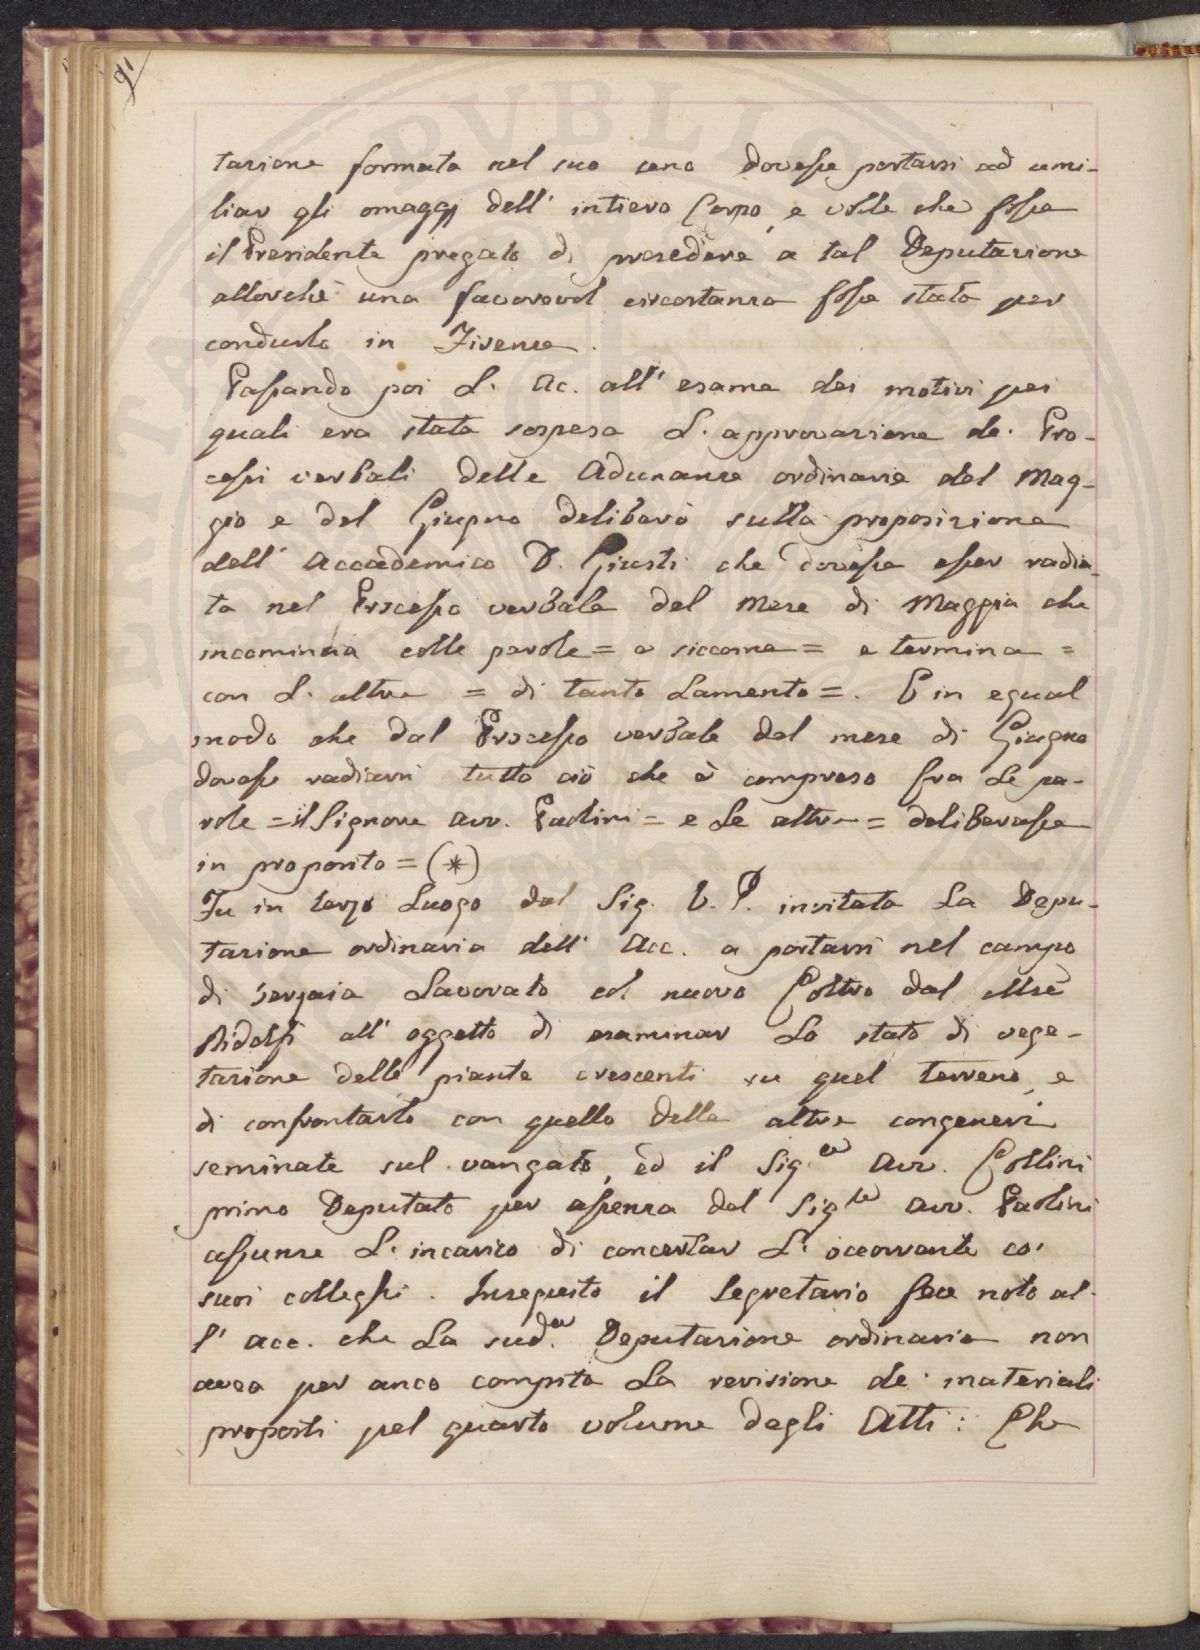 91
tazione formata nel suo seno dovesse portarsi ad umi-
liar gli omaggj dell' intiero Corpo, e volle che fosse
il Presidente pregato di presedere a tal Deputazione
allorchè una favorevol circostanza fosse stata per
condurlo in Firenze.
Passando poi L' Ac. all' esame dei motivi pei
quali era stata sospesa L' approvazione de' Pro-
cessi verbali delle Adunanze ordinarie del Mag-
gio e del Giugno deliberò sulla proposizione
dell' Accademico D. Giusti che dovesse esser radia-
ta nel Processo verbale del Mese di Maggio che
incomincia colle parole = e siccome = e termina =
con L' altre = di tanto Lamento =. E in egual
modo che dal Processo verbale del mese di Giugno
dovesse radiarsi tutto ciò che è compreso fra Le pa-
role = il Signore Avv. Paolini = e Le altre = deliberasse
in proposito = (*)
Fu in terzo Luogo dal Sig. V. P. invitata La Depu-
tazione ordinaria dell' Acc. a portarsi nel campo
di Serzaia Lavorato col nuovo Coltro dal Mse
Ridolfi all' oggetto di esaminar Lo stato di vege-
tazione delle piante crescenti su quel terreno, e
di confrontarlo con quello delle altre congeneri
seminate sul vangato, ed il Sig.re Avv. Collini
primo Deputato per assenza del Sig.re Avv. Paolini
assunse L' incarico di concertar L' occorrente co'
suoi colleghi. Inseguito il Segretario fece noto al-
l' Acc. che La sud.a Deputazione ordinaria non
avea per anco compita La revisione de' materiali
proposti pel quarto volume degli Atti: Che